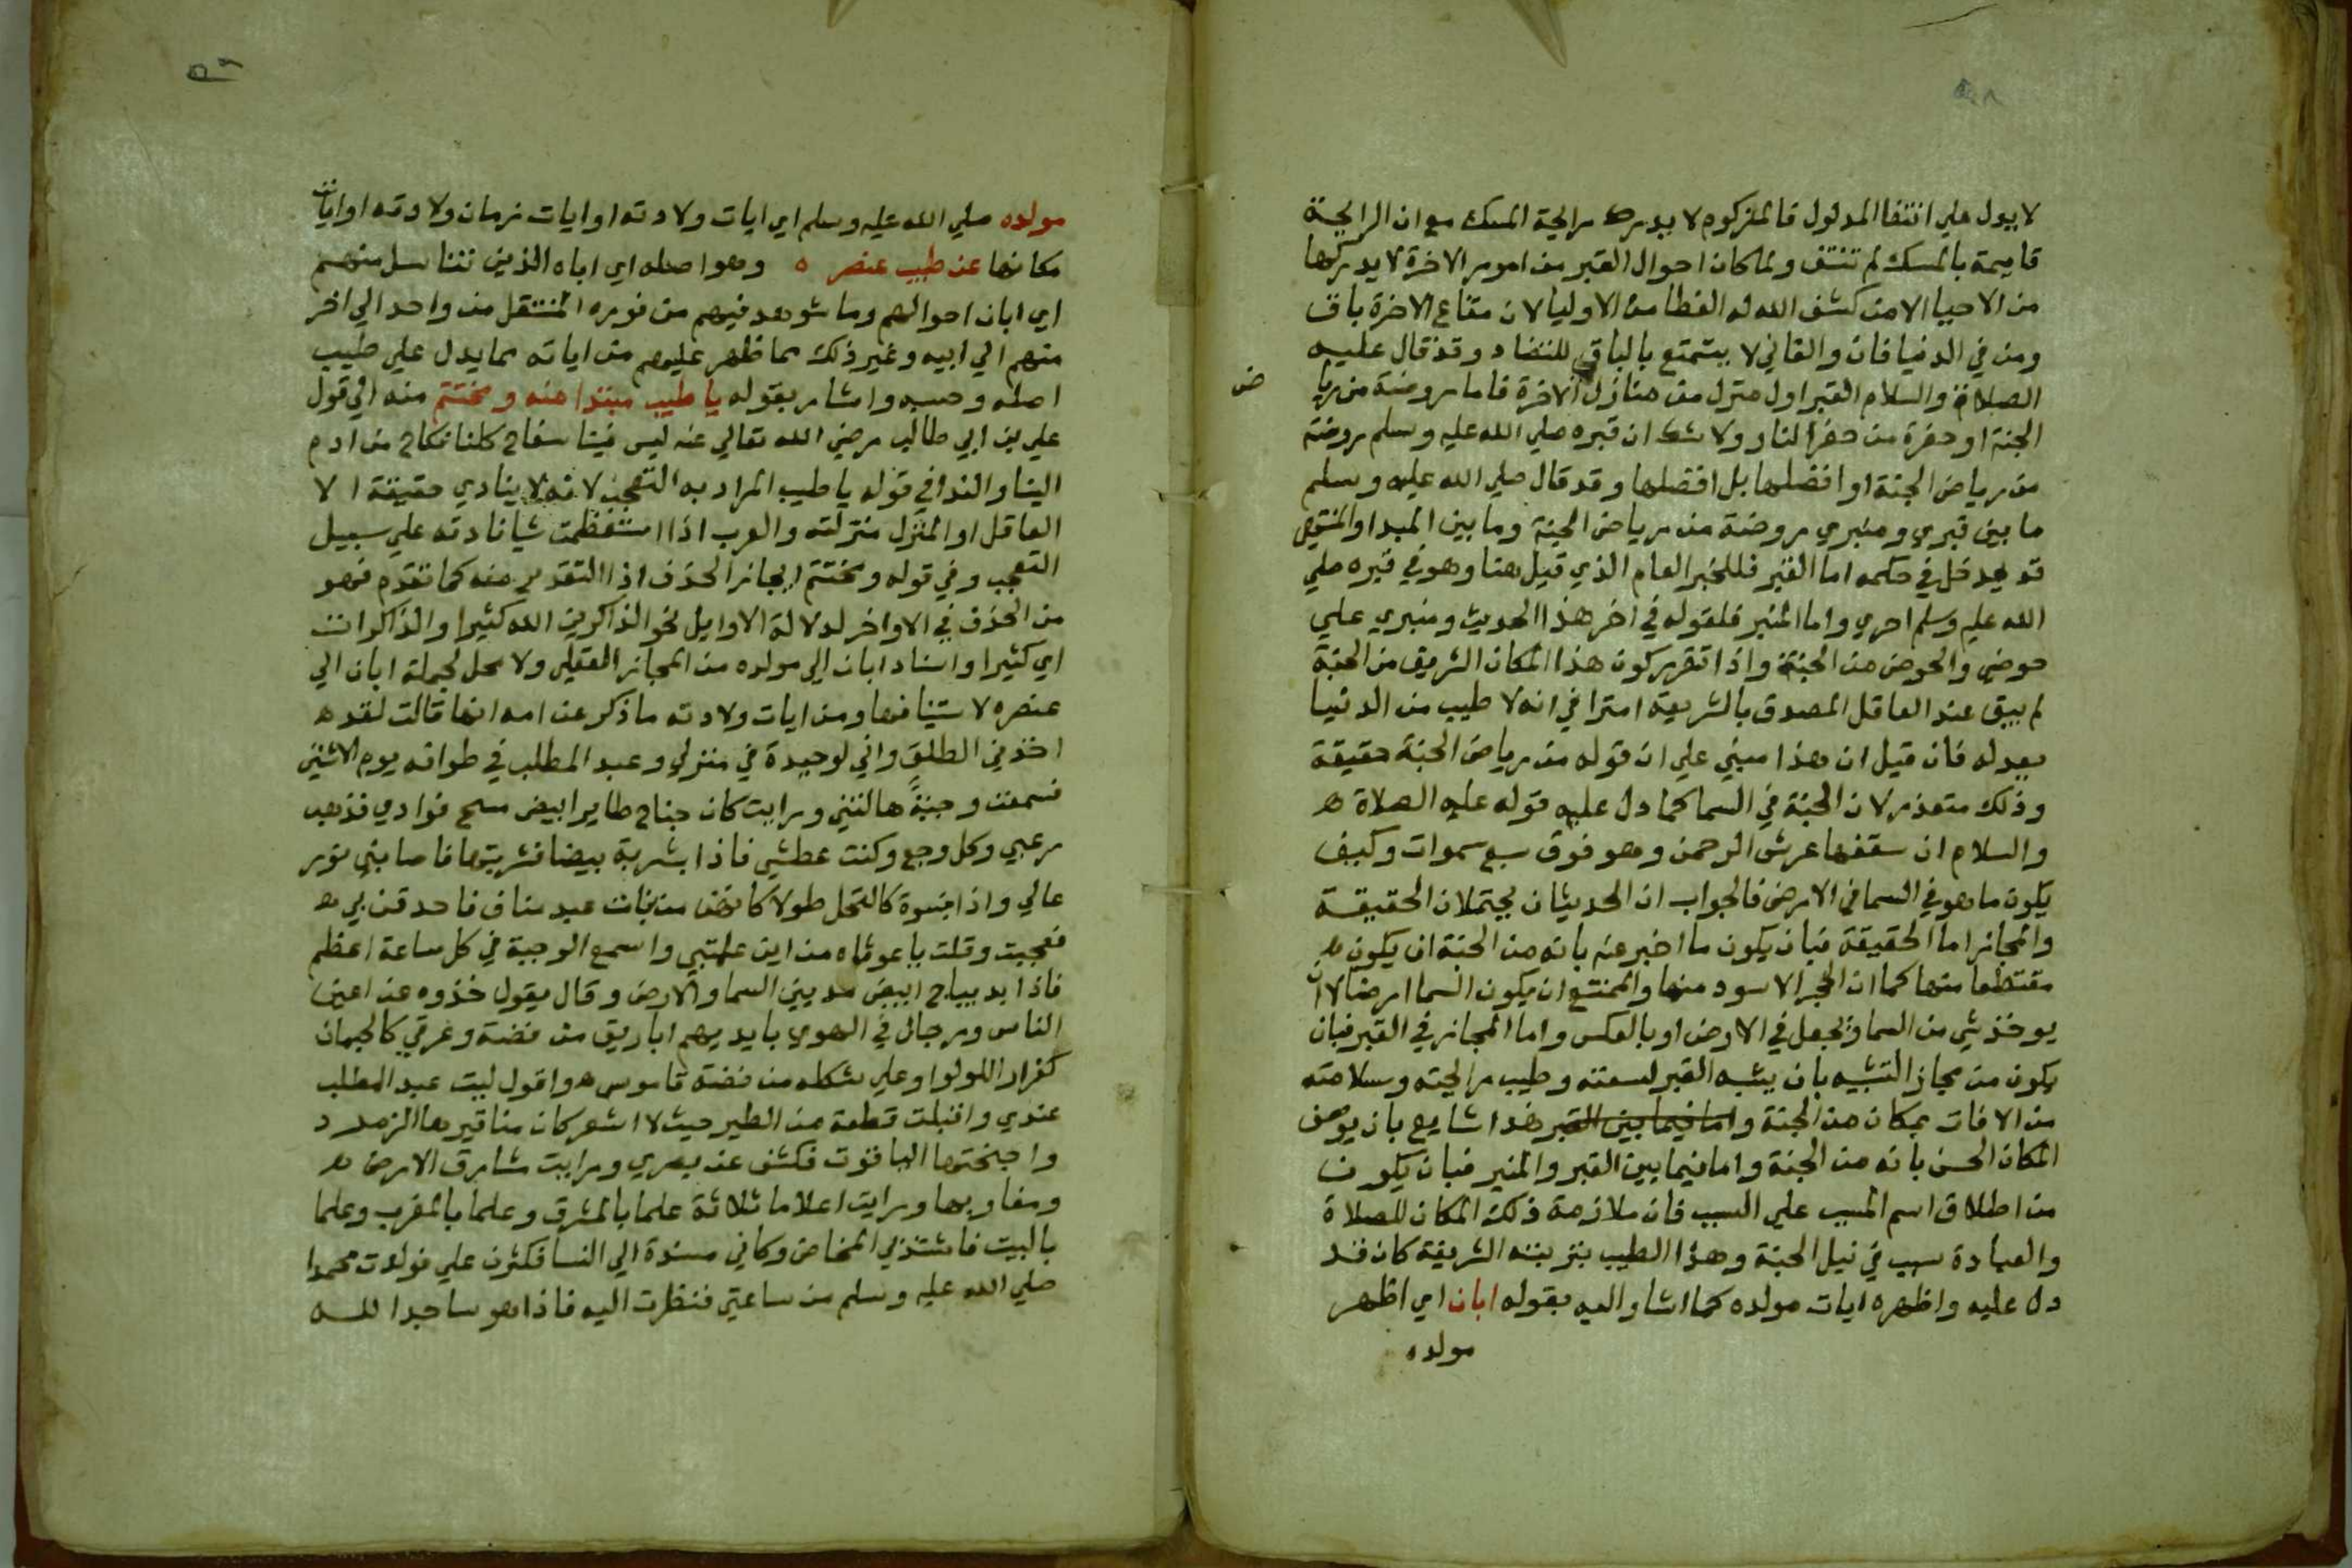 لا يدل علي انتفا المدلول فالمزكوم لا يدرك رايحة المسك مع ان الرايحة
قايمة بالمسك لم تنتف ولما كان احوال القبر من امور الاخرة لا يدركها
من الاحيا الا من كشف الله له الغطا من الاوليا لان متاع الاخرة باق
ومن في الدنيا فان والفاني لا يتمتع بالباقي للتضاد وقد قال عليه
الصلاة والسلام القبر اول منزل من منازل الاخرة فاما روضة من ريا
ض
الجنة او حفرة من حفر النار ولا شك ان قبره صلي الله عليه وسلم روضة
من رياض الجنة او افضلها بل افضلها وقد قال صلي الله عليه وسلم
ما بين قبري ومنبري روضة من رياض الجنة وما بين المبدا والمنتهي
قد يدخل في حكمه اما القبر فللخبر العام الذي قيل هنا وهو في قبره صلي
الله عليه وسلم احري واما المنبر فلقوله في اخر هذا الحديث ومنبري علي
حوضي والحوض من الجنة واذا تقرر كون هذا المكان الشريف من الجنة
لم يبق عند العاقل المصدق بالشريعة امترا في انه لا طيب من الدنيا
يعدله فان قيل ان هذا مبني علي ان قوله من رياض الجنة حقيقة
وذلك متعذر لان الجنة في السما كما دل عليه قوله عليه الصلاة
والسلام ان سقفها عرش الرحمن وهو فوق سبع سموات وكيف
يكون ما هو في السما في الارض فالجواب ان الحديثان يحتملان الحقيقة
والمجاز اما الحقيقة فبان يكون ما اخبر عنه بانه من الجنة ان يكون
مقتطعا منها كما ان الحجر الاسود منها والممتنع ان يكون السما ارضا لا ان
يوخذ شي من السما ويجعل في الارض او بالعكس واما المجاز في القبر فبان
يكون من مجاز التشبيه بان يشبه القبر لسعته وطيب رايحته وسلامته
من الافات بمكان من الجنة واما فيما بين القبر هذا شايع بان يوصف
المكان الحسن بانه من الجنة واما فيما بين القبر والمنبر فبان يكون
من اطلاق اسم المسبب علي السبب فان ملازمة ذلك المكان للصلاة
والعبادة سبب في نيل الجنة وهذا الطيب بتربته الشريفة كان قد
دل عليه واظهره ايات مولده كما اشار اليه بقوله ابان اي اظهر
مولده
مولده صلي الله عليه وسلم اي ايات ولادته او ايات زمان ولادته او ايات
مكانها عن طيب عنصره وهو اصله اي اباه الذين تناسل منهم
اي ابان احوالهم وما شوهد فيهم من نوره المنتقل من واحد الي اخر
منهم الي ابيه وغير ذلك مما ظهر عليهم من اياته مما يدل علي طيب
اصله وحسبه واشار بقوله يا طيب مبتدا منه ومختتم منه الي قول
علي بن ابي طالب رضي الله تعالي عنه ليس فينا سفاح كلنا نكاح من ادم
الينا والندا في قوله يا طيب المراد به التعجب لانه لا ينادي حقيقة الا
العاقل او المنزل منزلته والعرب اذا استعظمت شيا نادته علي سبيل
التعجب وفي قوله ومختتم ايجاز الحذف اذا التقدير منه كما تقدم فهو
من الحذف في الاواخر لدلالة الاوايل نحو الذاكرين الله كثيرا والذاكرات
اي كثيرا واسناد ابان الي مولده من المجاز العقلي ولا محل لجملة ابان الي
عنصره لاستينافها ومن ايات ولادته ما ذكر عن امه انها قالت لقد
اخذني الطلق واني لوحيدة في منزلي وعبد المطلب في طوافه يوم الاثنين
فسمعت وجبةً هالتني ورايت كان جناح طاير ابيض مسح فوادي فذهب
رعبي وكل وجع وكنت عطشي فاذا بشربة بيضا فشربتها فاصابني نور
عالي واذا نسوة كالنخل طولا كانهن من بنات عبد مناف فاحدقن بي
فعجبت وقلت ياغوثاه من اين علمتني واسمع الوجبة في كل ساعة اعظم
فاذا بديباج ابيض مد بين السما والارض وقال يقول خذوه عن اعين
الناس ورجال في الهوي بايديهم اباريق من فضة وعرقي كالجمان
عندي واقبلت قطعة من الطير حيث لا اشعر كان مناقيرها الزمرد
واجنحتها الياقوت فكشف عن بصري ورايت مشارق الارض
ومغاربها ورايت اعلاما ثلاثة علما بالمشرق وعلما بالمغرب وعلما
بالبيت فاشتد بي المخاض وكاني مسندة الي النسا فكثرن علي فولدت محمدا
صلي الله عليه وسلم من ساعتي فنظرت اليه فاذا هو ساجدا لله